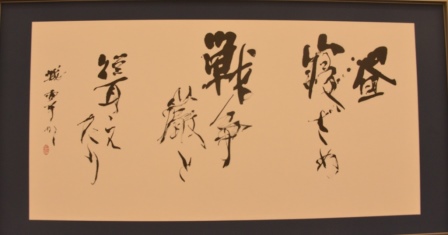 昼
寝ざめ
戦争
厳と
聳え
たり